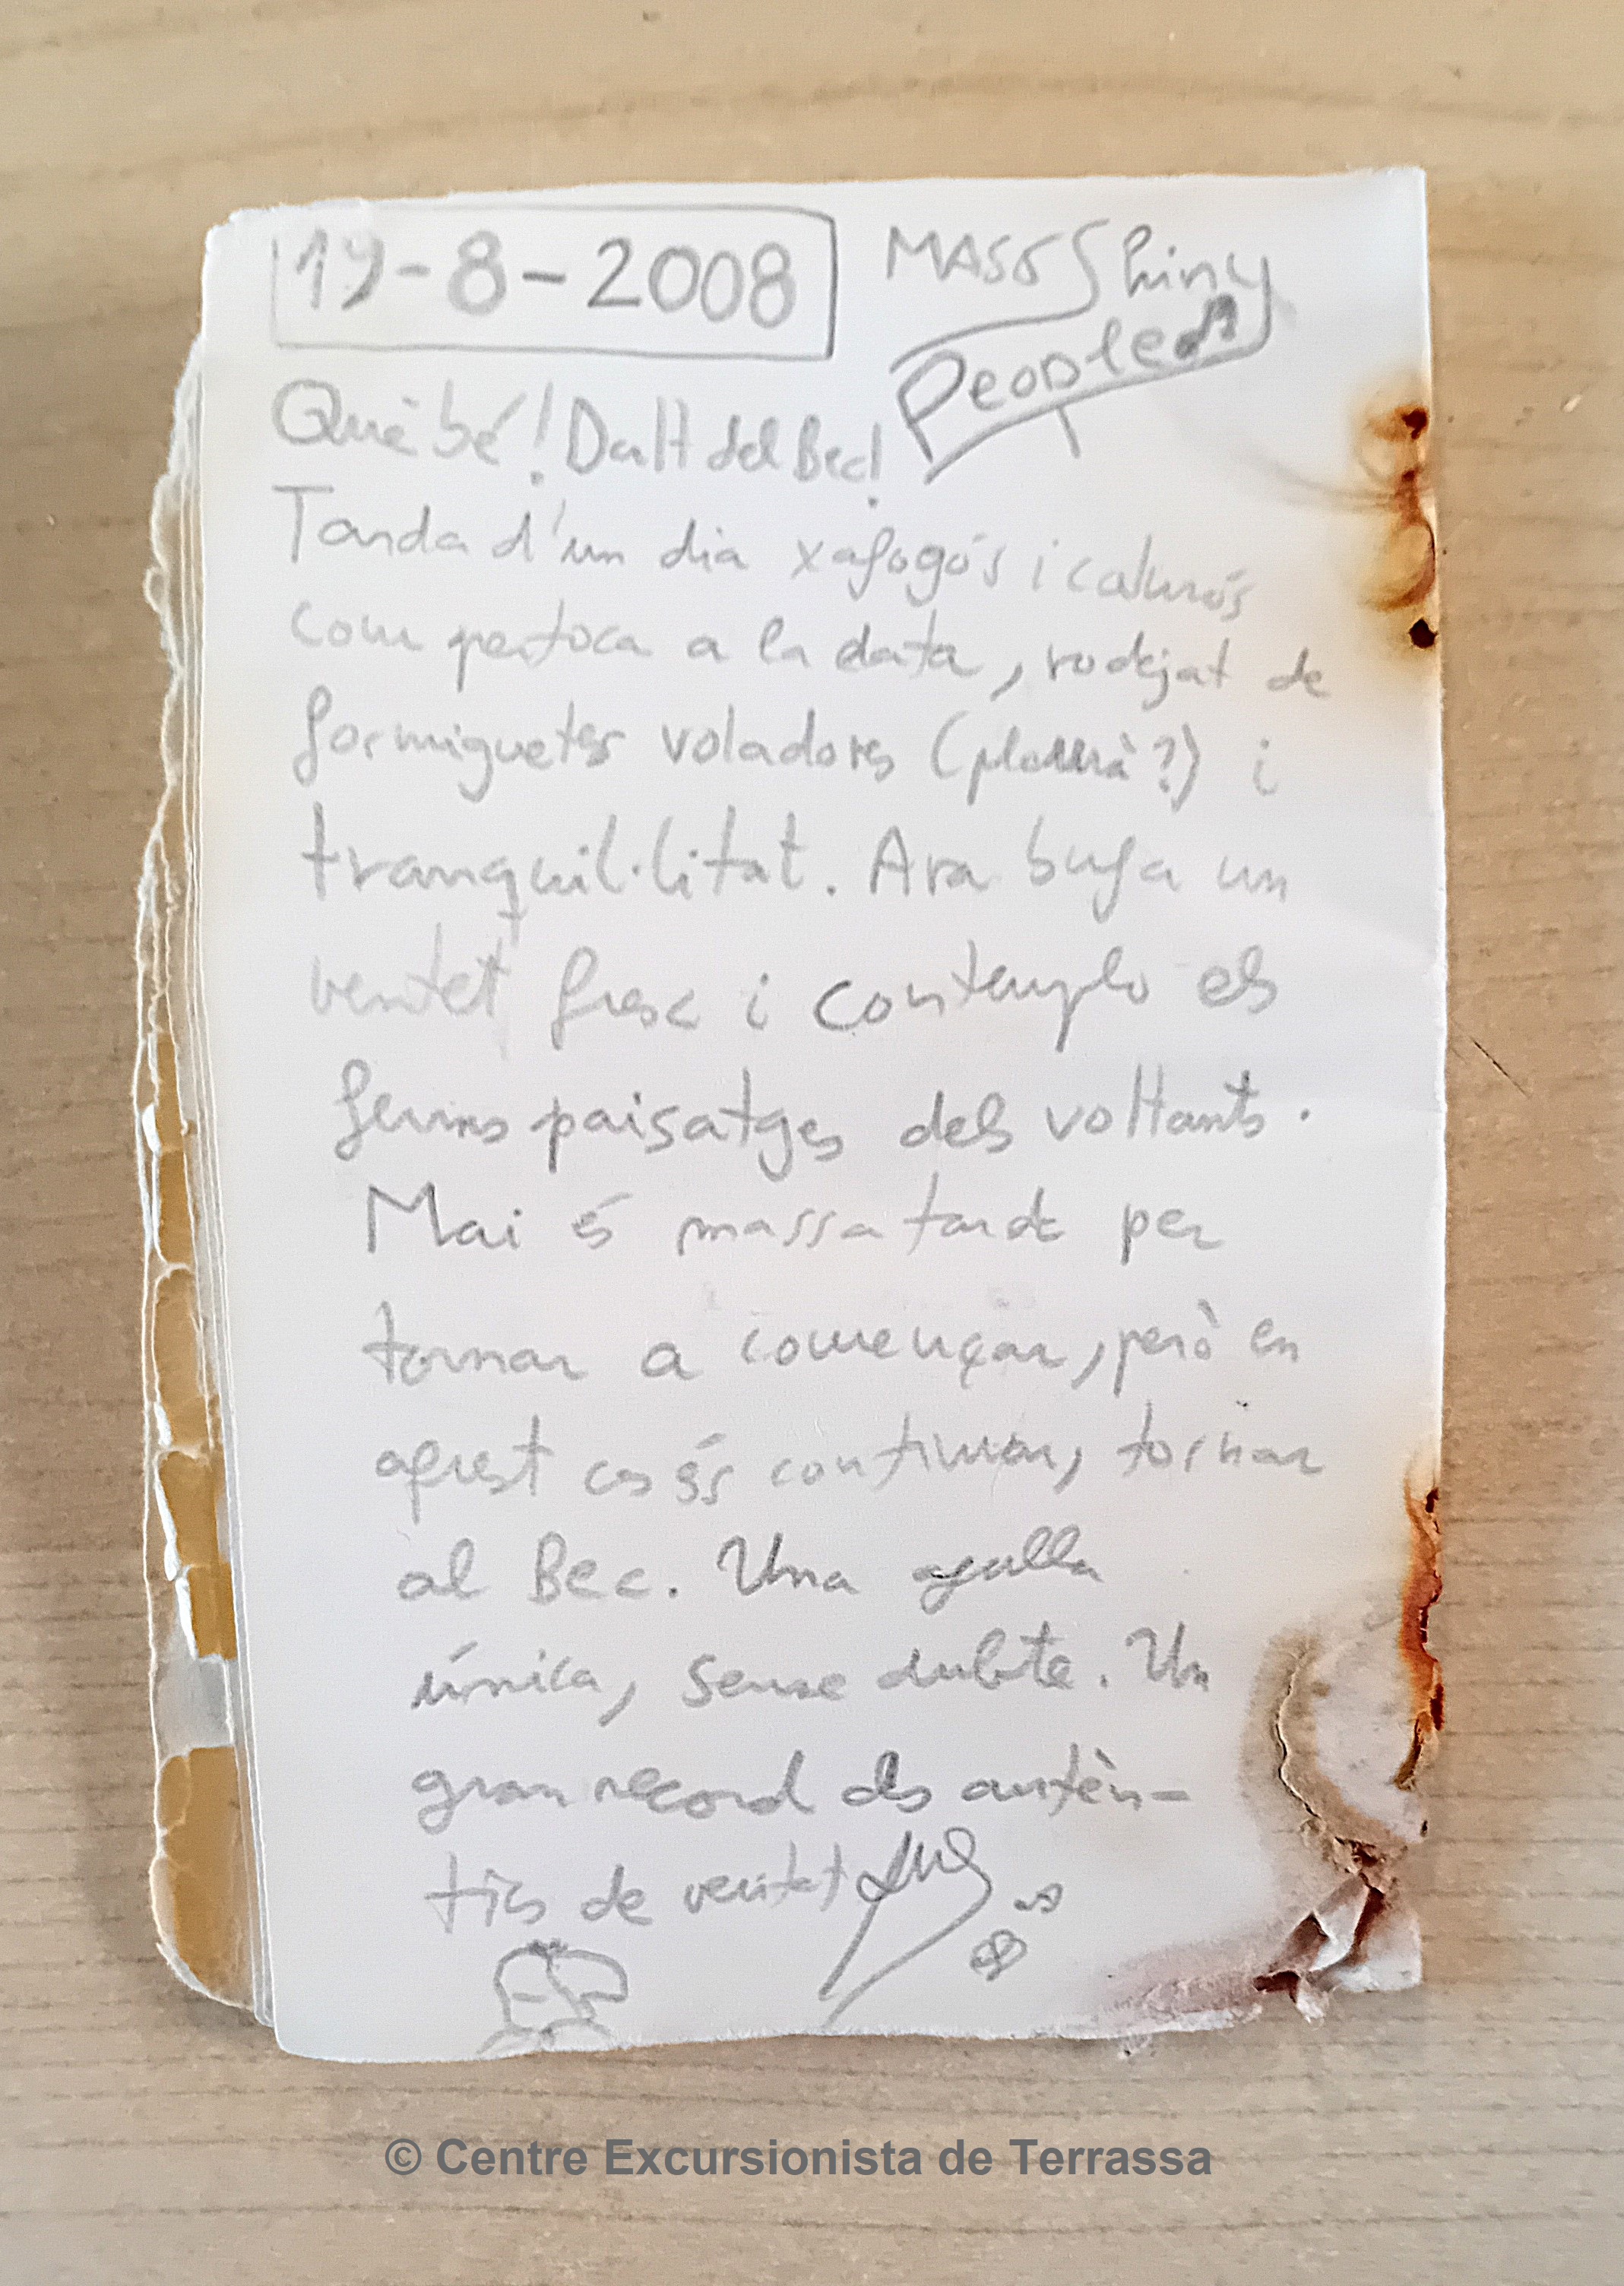 19-8-2008
MASS Shiny
People
Què bé! Dalt del Bec!
Tarda d'un dia xafogós i calurós
com pertoca a la data, rodejat de
formiguetes voladores (plourà?) i
tranquil·litat. Ara bufa un
ventet fresc i contemplo els
ferms paisatges dels voltants.
Mai és massa tard per
tornar a començar, però en
aquest cas és continuar, tornar
al Bec. Una agulla
única, sense dubte. Un
gran record als autèn-
tics de veritat
© Centre Excursionista de Terrassa